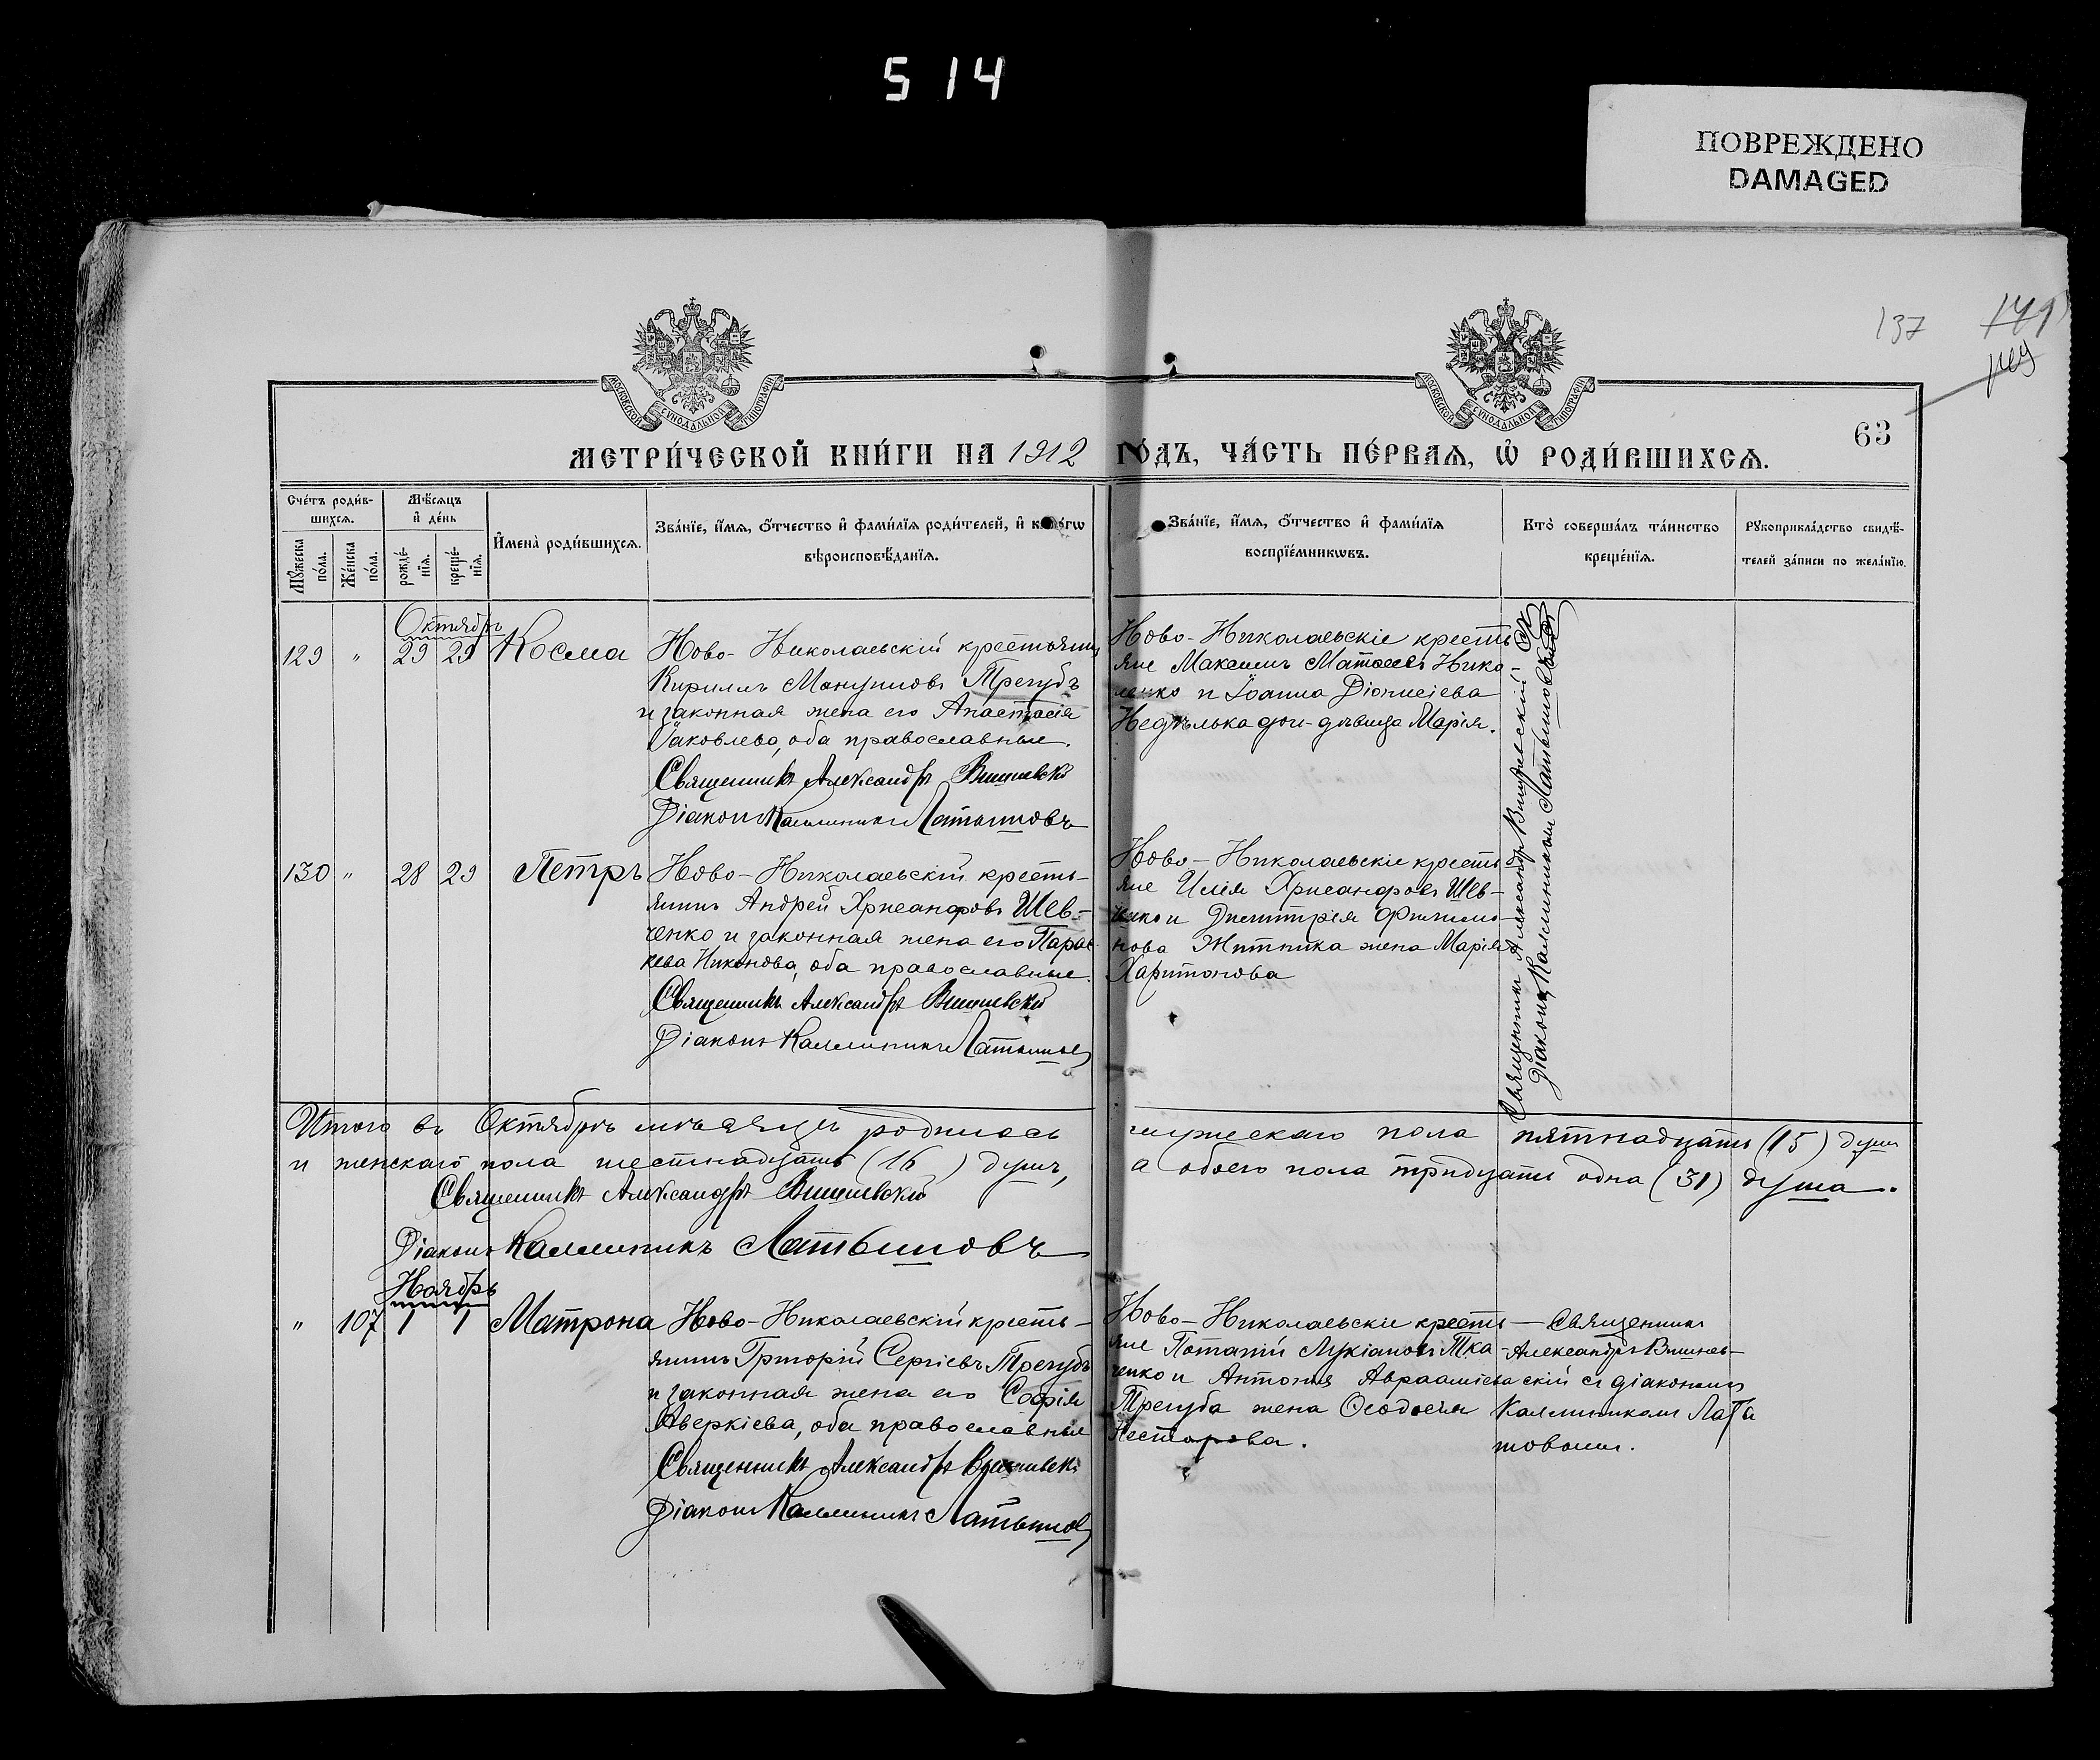 514
ПОВРЕЖДЕНО
DAMAGED
137
149
63
МОСКОВСКОЙ СѴНОДАЛЬНОЙ ТИПОГРАФІИ
МОСКОВСКОЙ СѴНОДАЛЬНОЙ ТИПОГРАФІИ
МЕТРИ́ЧЕСКОЙ КНИ́ГИ НА 1912 ГО́ДЪ, ЧА́СТЬ ПЕ́РВАѦ, Ѡ҆ РОДИ́ВШИХСѦ.
Сче́тъ роди́в-
шихсѧ.
Мѣ́сѧцъ
и҆ де́нь
Мꙋ́жеска по́ла.
Же́нска по́ла.
рожде́-
нїѧ.
креще́-
нїѧ.
И҆мена̀ роди́вшихсѧ.
Зва́нїе, и҆́мѧ, ѻ҆́тчество и҆ фами́лїѧ роди́телей, и҆ како́гѡ
вѣроисповѣ́данїѧ.
Зва́нїе, и҆́мѧ, ѻ҆́тчество и҆ фами́лїѧ
воспрїе́мникѡвъ.
Кто̀ соверша́лъ та́инство
креще́нїѧ.
Рꙋкоприкла́дство свидѣ́-
телей за́писи по жела́нїю.
Октябрь
129 " 29 29 Косма
Ново-Николаевскій крестьянинъ
Кириллъ Мануиловъ Трегубъ
и законная жена его Анастасія
Іаковлева, оба православные.
Священникъ Александръ Вишневскій
Діаконъ Каллиникъ Латышовъ
Ново-Николаевскіе кресть
яне Максимъ Матѳеевъ Нико-
ленко и Іоанна Діонисіева
Недѣлька дѣвица Марія.
Священникъ Александръ Вишневскій съ
діакономъ Каллиникомъ Латышовымъ
130 " 28 29 Петръ
Ново-Николаевскій кресть-
янинъ Андрей Хрисанфовъ Шев-
ченко и законная жена его Парас-
кева Никонова, оба православные.
Священникъ Александръ Вишневскій
Діаконъ Каллиникъ Латышовъ
Ново-Николаевскіе кресть
яне Илія Хрисанфовъ Шев-
ченко и Димитрія Филимо-
нова Житника жена Марія
Харитонова
Итого въ Октябрѣ мѣсяцѣ родилось мужескаго пола пятнадцать (15) душъ
и женскаго пола шестнадцать (16) душъ, а обоего пола тридцать одна (31) душа.
Священникъ Александръ Вишневскій
Діаконъ Каллиникъ Латышовъ
Ноябрь
" 107 1 1 Матрона
Ново-Николаевскій кресть-
янинъ Григорій Сергіевъ Трегубъ
и законная жена его Софія
Аверкіева, оба православные
Священникъ Александръ Вишневскій
Діаконъ Каллиникъ Латышовъ
Ново-Николаевскіе кресть-
яне Потапій Лукіановъ Тка-
ченко и Антонія Аврааміева
Трегуба жена Ѳеодосія
Несторова.
Священникъ
Александръ Вишнев-
скій съ діакономъ
Каллиникомъ Латы
шовымъ.